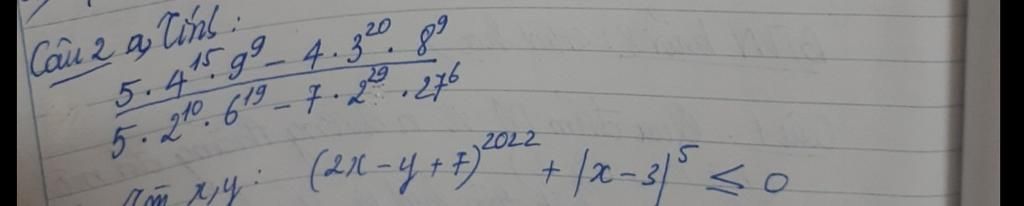 Câu 2 a, Tính:
5.4^15.9^9 - 4.3^20.8^9
5.2^10.6^19 - 7.2^29.27^6
Tìm x,y: (2x - y + 7)^2022 + |x - 3|^5 ≤ 0